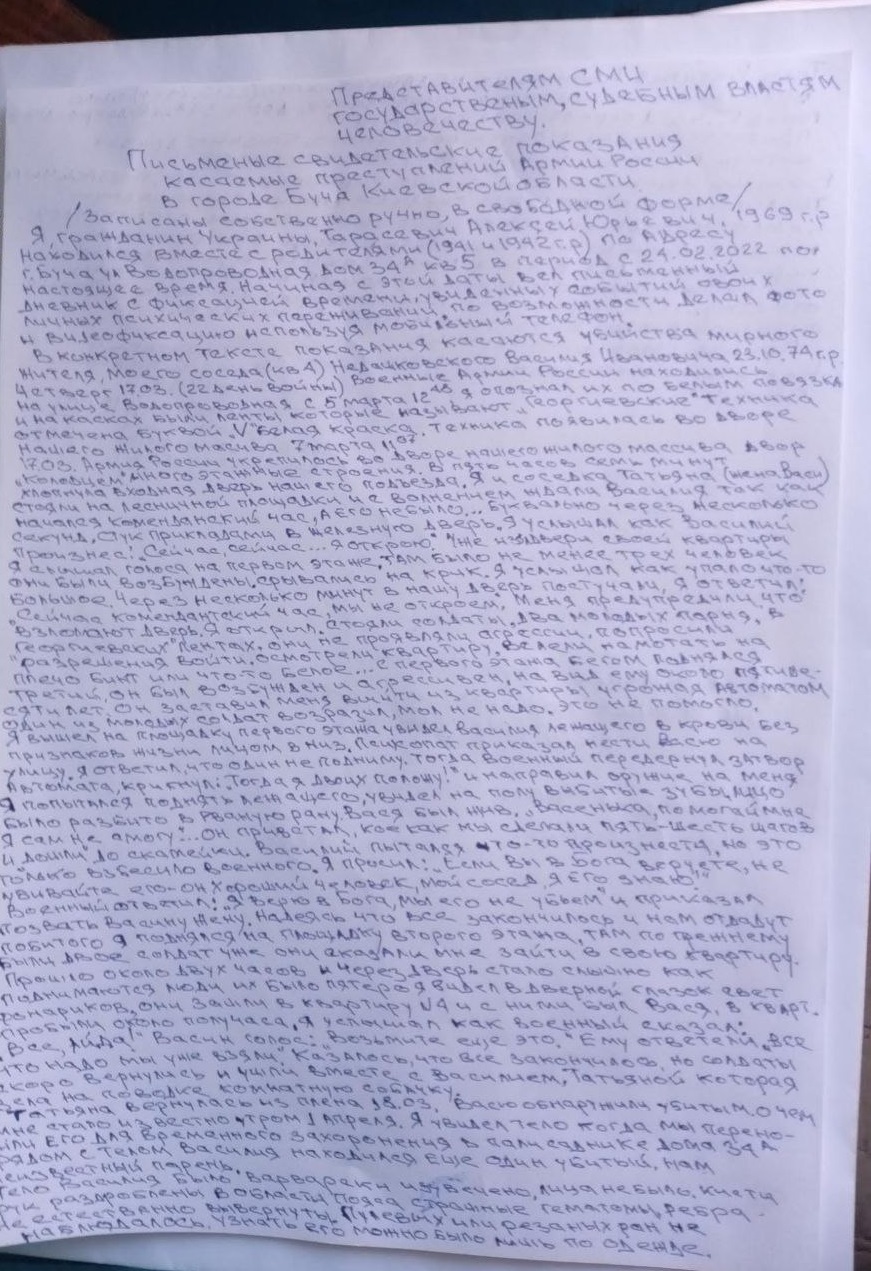 Представителям СМИ
государственым, судебным властям
человечеству.
Письменые свидетельские показания
касаемые преступлений Армии России
в городе Буча Киевской области.
/Записаны собственно ручно, в свободной форме/
Я, гражданин Украины, Тарасевич Алексей Юрьевич, 1969 г.р
находился вместе с родителями (1941 и 1942 г.р) по адресу
г. Буча ул Водопроводная дом 34А кв 5 в период с 24.02.2022 по
настоящее время. Начиная с этой даты вел письменный
дневник с фиксацией времени, увиденных событий своих
личных психических переживаний, по возможности делал фото
и видеофиксацию используя мобильный телефон.
В конкретном тексте показания касаются убийства мирного
жителя, моего соседа (кв 4) Недашковского Василия Ивановича 23.10.74 г.р.
Четверг 17.03. (22 день войны) Военные Армии России находились
на улице Водопроводная с 5 марта 12 я опознал их по белым повязка
и на касках были ленты которые называют "Георгиевские" Техника
отмечена буквой "V" белая краска. Техника появилась во дворе
нашего жилого масива 7 марта 11 07
17.03. Армия России укрепилось во дворе нашего жилого массива двор
"колодцем" много этажные строения. В пять часов семь минут
хлопнула входная дверь нашего подъезда, я и соседка Татьяна (жена Васи)
стояли на лесничной площадки и с волнением ждали Василия так как
начался комендантский час, а его небыло... Буквально через несколько
секунд, стук прикладами в железную дверь. Я услышал как Василий
произнес: "Сейчас, сейчас... я открою." Уже из двери своей квартиры
я слышал голоса на первом этаже, там было не менее трех человек
они были возбуждены, срывались на крик. Я услышал как упало что-то
большое. Через несколько минут в нашу дверь постучали, я ответил:
"Сейчас комендантский час, мы не откроем. Меня предупредили, что
взломают дверь. Я открыл. Стояли солдаты, два молодых парня, в
"Георгиевских" лентах. Они не проявляли агрессии, попросили
разрешения войти. Осмотрели квартиру, велели намотать на
плечо бинт или что-то белое... с первого этажа бегом поднялся
третий, он был возбужден и агрессивен, на вид ему около пятиде-
сяти лет. Он заставил меня выйти из квартиры угрожая автоматом
один из молодых солдат возразил, мол не надо. Это не помогло.
Я вышел на площадку первого этажа увидел Василия лежащего в крови без
признаков жизни лицом в низ. Психопат приказал нести Васю на
улицу. Я ответил, что один не подниму. Тогда военный передернул затвор
автомата, крикнул: "Тогда я двоих положу!" и направил оружие на меня
Я попытался поднять лежащего, увидел на полу выбитые зубы, лицо
было разбито в рваную рану. Вася был жив. "Васенька, помогай мне
я сам не смогу"... он привстал, кое как мы сделали пять-шесть шагов
и дошли до скамейки. Василий пытался что-то произнести, но это
только взбесило военного. Я просил: "Если Вы в Бога веруете, не
убивайте его - он хороший человек, мой сосед, я его знаю."
Военный ответил: "Я верю в Бога, мы его не убьем" и приказал
позвать Васину жену. Надеясь что все закончилось и нам отдадут
побитого я поднялся на площадку второго этажа, там по прежнему
были двое солдат уже они сказали мне зайти в свою квартиру.
Прошло около двух часов и через дверь стало слышно как
поднимаются люди их было пятеро я видел в дверной глазок свет
фонариков. Они зашли в квартиру №4 и с ними был Вася, в кварт.
пробыли около получаса, я услышал как военный сказал:
"Все, айда!" Васин голос: Возьмите еще это." Ему ответили "все
что надо мы уже взяли" Казалось, что все закончилось, но солдаты
скоро вернулись и ушли вместе с Василием, Татьяной которая
вела на поводке комнатную собачку.
Татьяна вернулась из плена 18.03. Васю обнаружили убитым. О чем
мне стало известно утром 1 апреля. Я увидел тело когда мы перено-
сили его для временного захоронения в палисаднике дома 34А
рядом с телом Василия находился еще один убитый, нам
неизвестный парень.
Тело Василия было варварски изувечено, лица небыло, кисти
рук раздроблены в области пояса страшные гематомы, ребра
не естественно вывернуты. Пулевых или резаных ран не
наблюдалось. Узнать его можно было лишь по одежде.